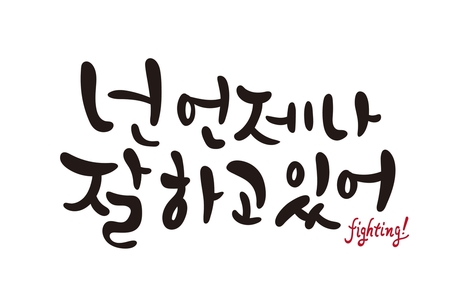 넌 언제나
잘하고 있어
fighting!